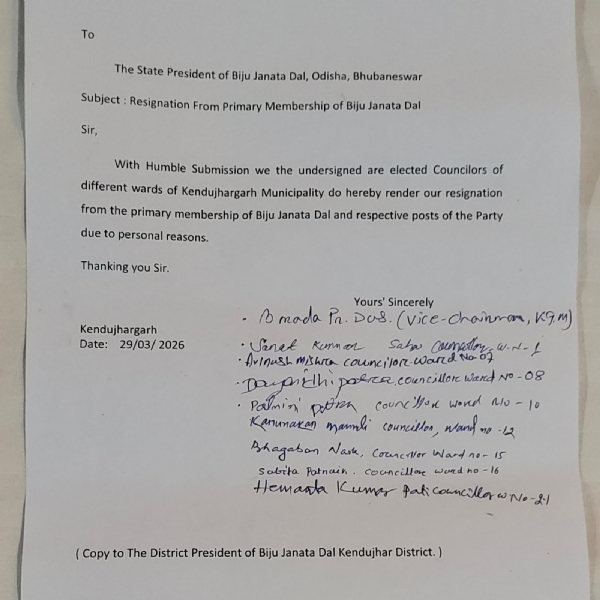 To
The State President of Biju Janata Dal, Odisha, Bhubaneswar
Subject : Resignation From Primary Membership of Biju Janata Dal
Sir,
With Humble Submission we the undersigned are elected Councilors of
different wards of Kendujhargarh Municipality do hereby render our resignation
from the primary membership of Biju Janata Dal and respective posts of the Party
due to personal reasons.
Thanking you Sir.
Yours' Sincerely
Pr. Das. (Vice-Chairman, K.G.M)
Kendujhargarh
Date: 29/03/ 2026
Sanat Kumar Sahu Councillor, W.N-1
Avinash Mishra councilore ward No 07
patra, councillore ward No - 08
patra councillor word No - 10
councillor, ward no - 12
Bhagaban Naik, Councillor Ward no - 15
Sabita Patnaik. councillore word no - 16
Hemanta Kumar Pati councillor W No - 21
( Copy to The District President of Biju Janata Dal Kendujhar District. )